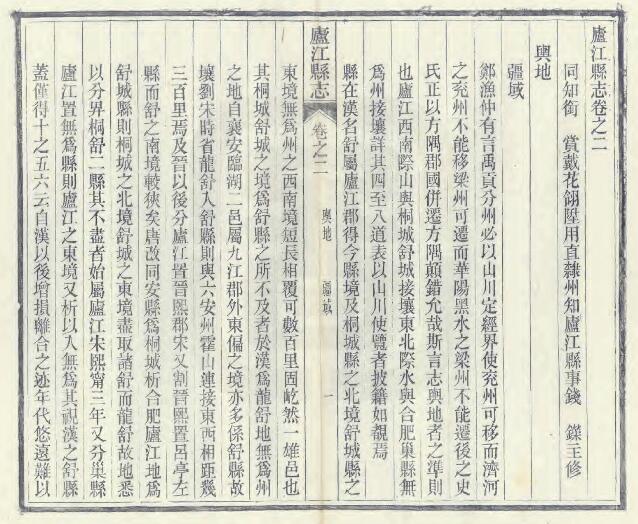 廬江縣志卷之二
同知銜　賞戴花翎陞用直隸州知廬江縣事錢　鑅主修
輿地
疆域
鄭漁仲有言禹貢分州必以山川定經界使兗州可移而濟河
之兗州不能移梁州可遷而華陽黑水之梁州不能遷後之史
氏正以方隅郡國併遷方隅顛錯允哉斯言志輿地者之準則
也廬江西南際山與桐城舒城接壤東北際水與合肥巢縣無
為州接壤詳其四至八道表以山川使覽者披籍如覩焉
縣在漢名舒屬廬江郡得今縣境及桐城縣之北境舒城縣之
廬江縣志
卷之二
輿地
疆域
一
東境無為州之西南境短長相覆可數百里固屹然一雄邑也
其桐城舒城之境為舒縣之所不及者於漢為龍舒地無為州
之地自襄安臨湖二邑屬九江郡外東偏之境亦多係舒縣故
壤劉宋時省龍舒入舒縣則與六安州霍山連接東西相距幾
三百里焉及晉以後分廬江置晉熙郡宋又割晉熙置呂亭左
縣而舒之南境較狹矣唐改同安縣為桐城析合肥廬江地為
舒城縣則桐城之北境舒城之東境盡取諸舒而龍舒故地悉
以分畀桐舒二縣其不盡者始屬廬江宋熙甯三年又分巢縣
廬江置無為縣則廬江之東境又析以入無為其視漢之舒縣
蓋僅得十之五六云自漢以後增損離合之迹年代悠遠難以